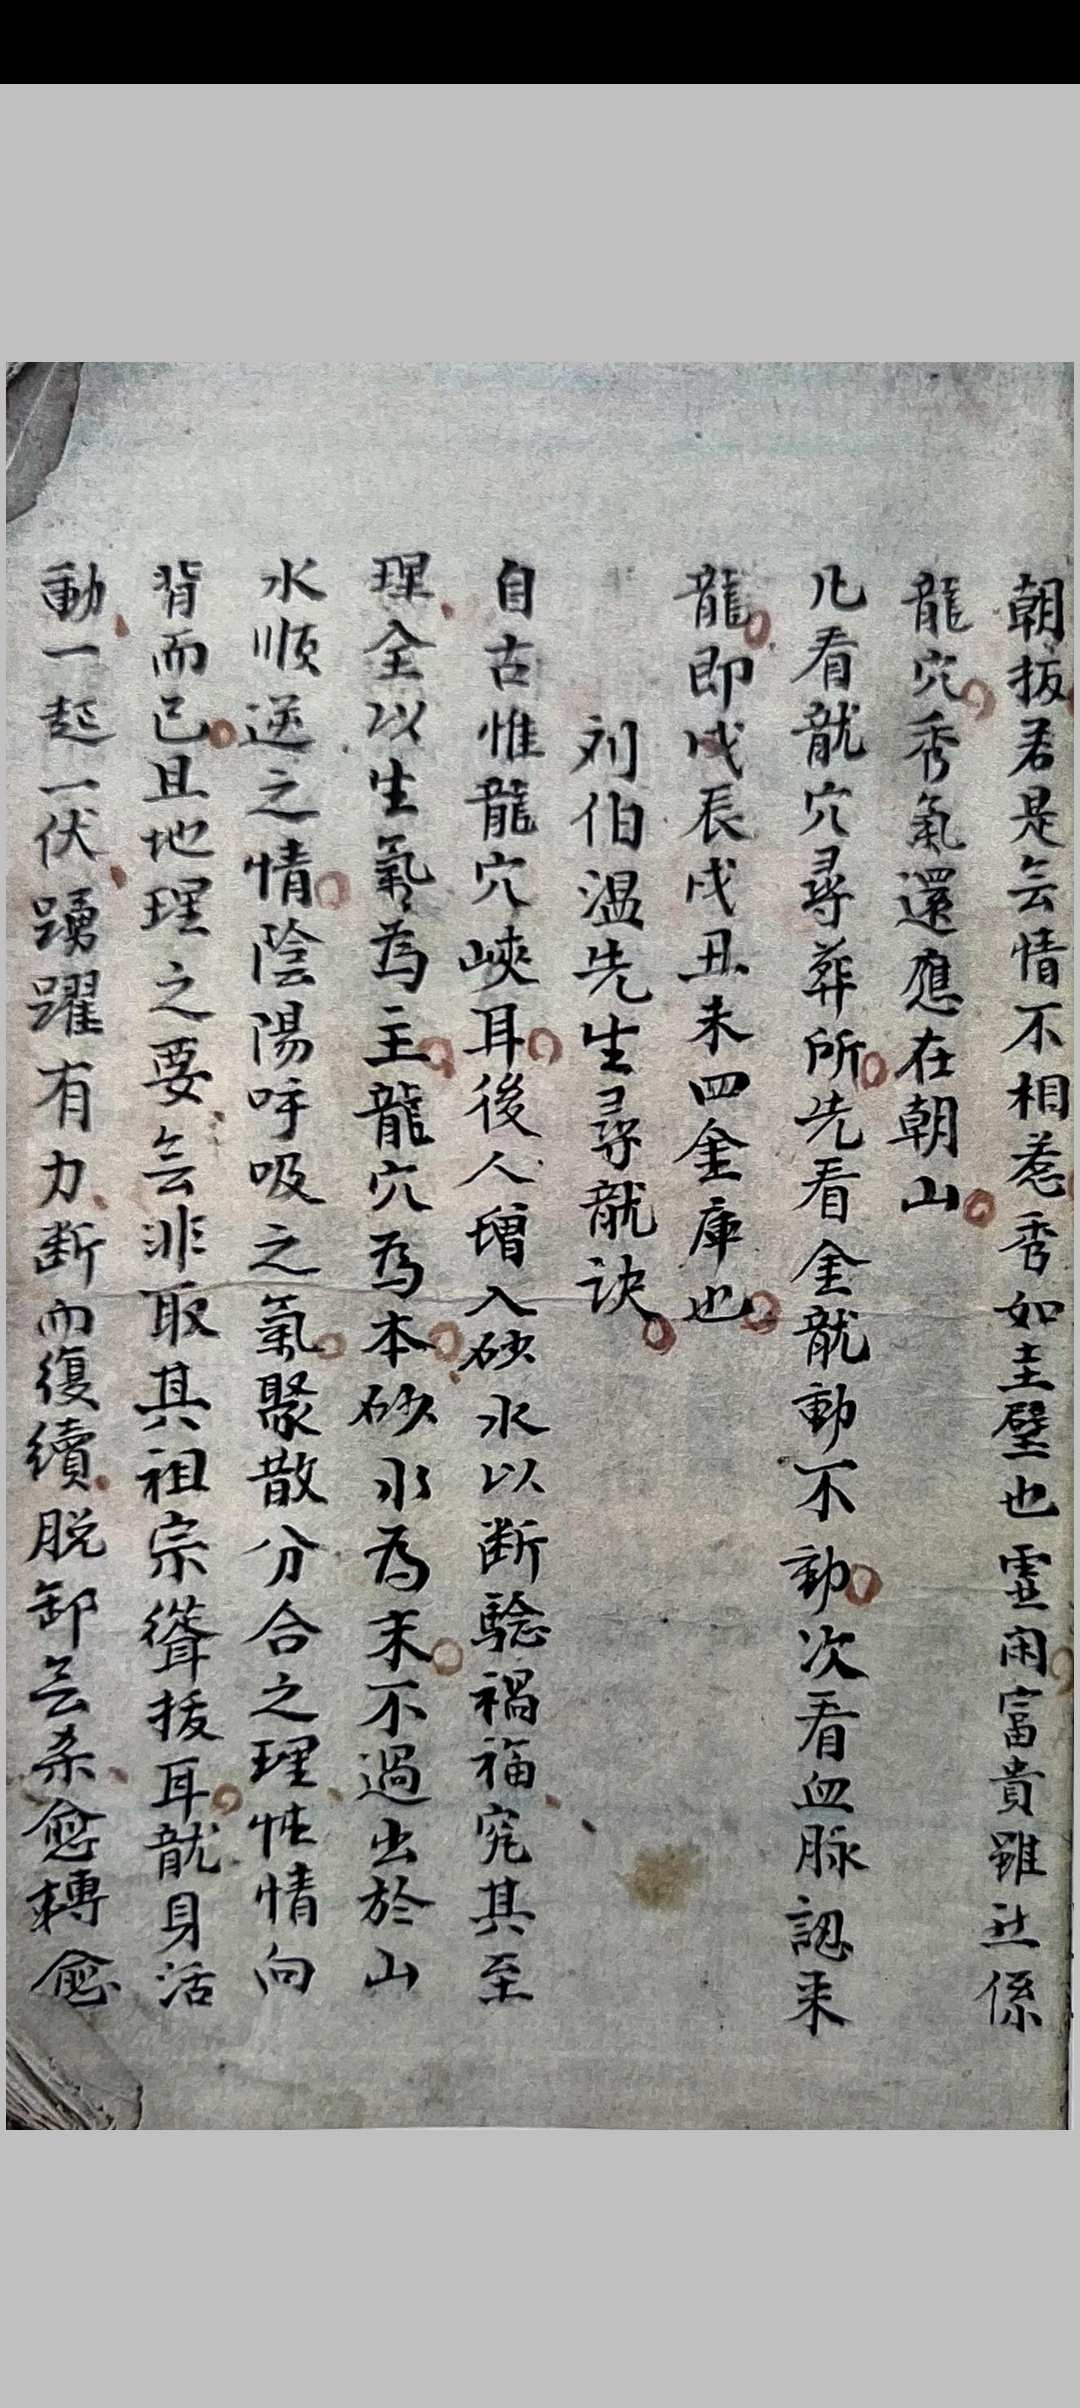 朝扳君是㒇情不相惹秀如圭璧也㚑闲富貴雖社係
龍穴秀氣還應在朝山
凡看龍穴尋葬所先看金龍動不動次看血脉認来
龍即戌辰戌丑未四金庫也
刘伯温先生尋龍訣
自古惟龍穴峽耳後人增入砂水以断騐禍福究其至
理全以生氣為主龍穴為本砂水為末不過出於山
水順逆之情陰陽呼吸之氣聚散分合之理性情向
背而已且地理之要㒇非取其祖宗聳拔耳龍身活
動一起一伏踴躍有力断而復續脱卸㒇杀愈轉愈